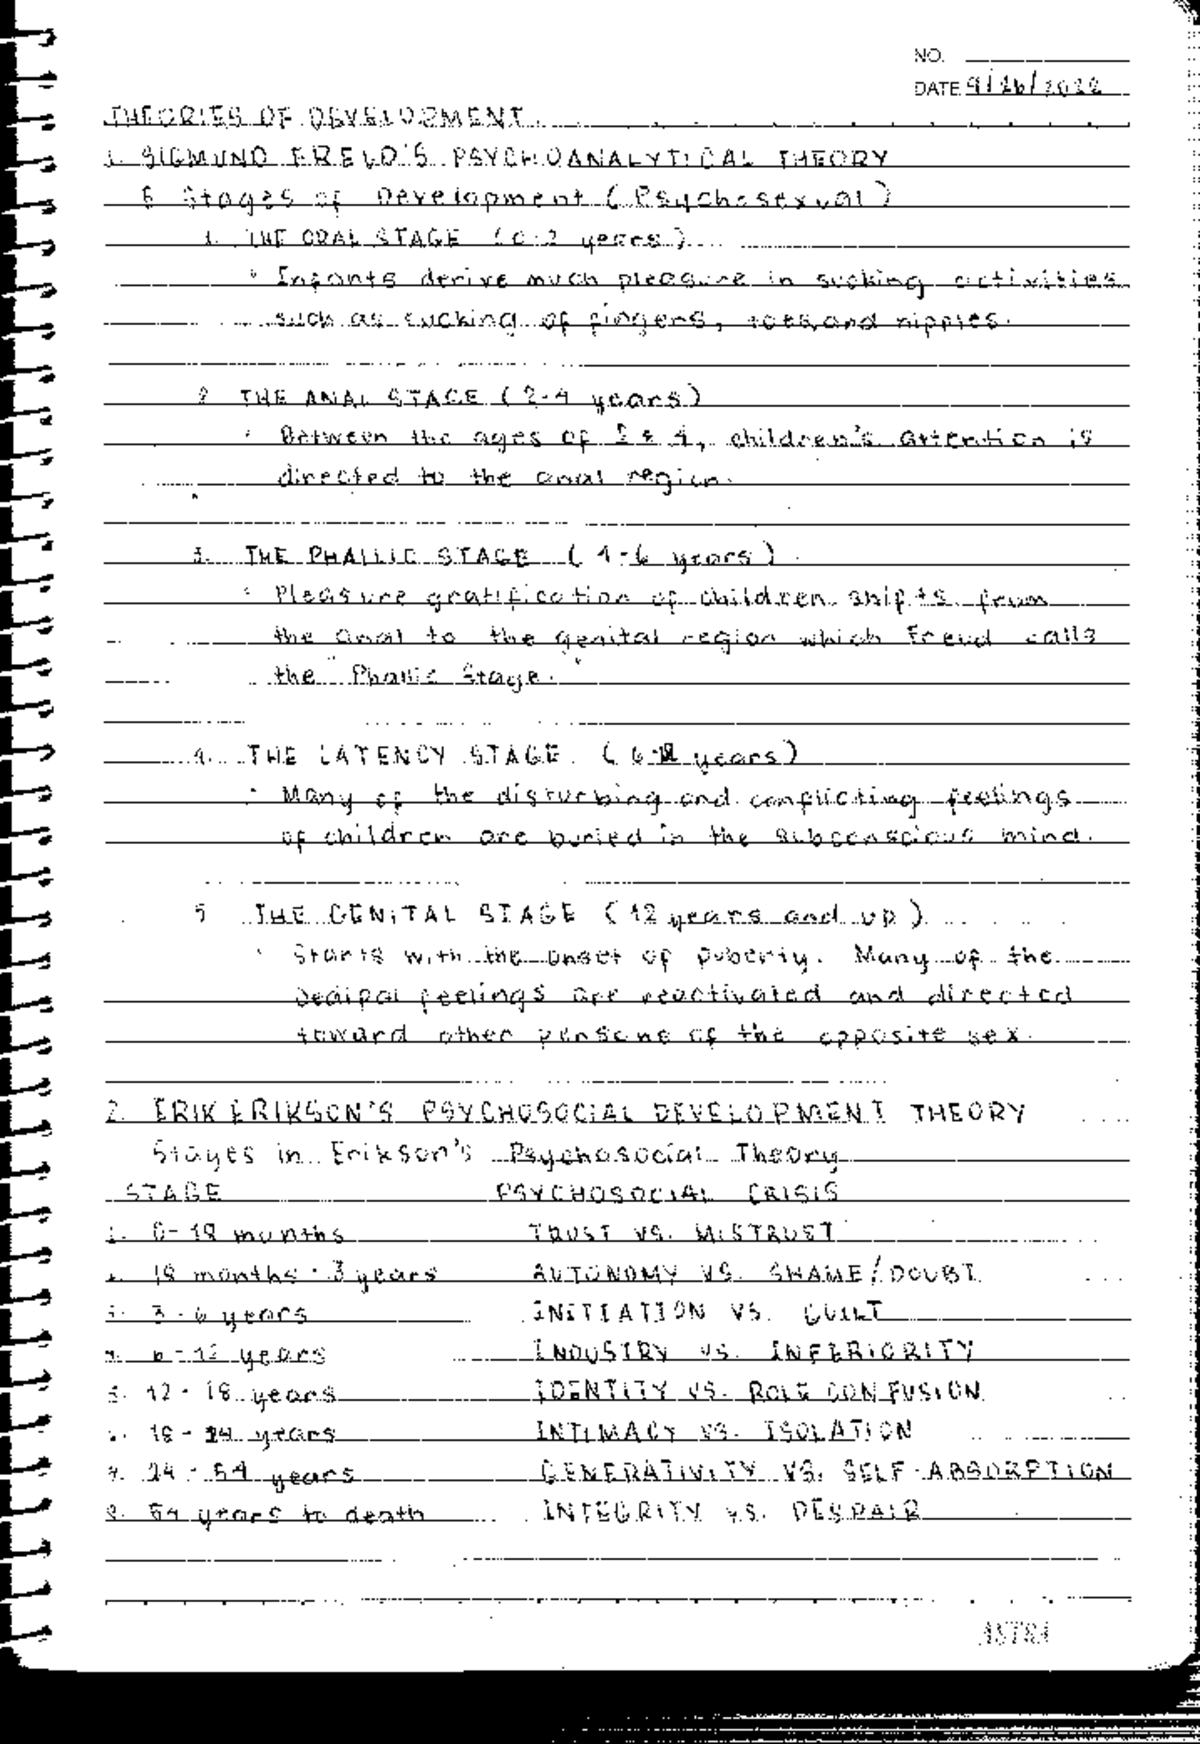 NO.
DATE 9/26/2022
THEORIES OF DEVELOPMENT
1. SIGMUND FREUD'S PSYCHOANALYTICAL THEORY
5 Stages of Development (Psychosexual)
1. THE ORAL STAGE (0-2 years)
• Infants derive much pleasure in sucking activities
such as sucking of fingers, toes, and nipples.
2 THE ANAL STAGE (2-4 years)
• Between the ages of 2 & 4, children's attention is
directed to the anal region.
3. THE PHALLIC STAGE (4-6 years)
• Pleasure gratification of children shifts from
the anal to the genital region which Freud calls
the "Phallic Stage."
4. THE LATENCY STAGE (6-12 years)
• Many of the disturbing and conflicting feelings
of children are buried in the subconscious mind.
5 THE GENITAL STAGE (12 years and up)
• Starts with the onset of puberty. Many of the
Oedipal feelings are reactivated and directed
toward other persons of the opposite sex.
2. ERIK ERIKSON'S PSYCHOSOCIAL DEVELOPMENT THEORY
Stages in Erikson's Psychosocial Theory
STAGE PSYCHOSOCIAL CRISIS
1. 0-18 months TRUST VS. MISTRUST
2. 18 months - 3 years AUTONOMY VS. SHAME/DOUBT
3. 3-6 years INITIATION VS. GUILT
4. 6-12 years INDUSTRY VS. INFERIORITY
5. 12-18 years IDENTITY VS. ROLE CONFUSION
6. 18-24 years INTIMACY VS. ISOLATION
7. 24-54 years GENERATIVITY VS. SELF-ABSORPTION
8. 54 years to death INTEGRITY VS. DESPAIR
ASTRA